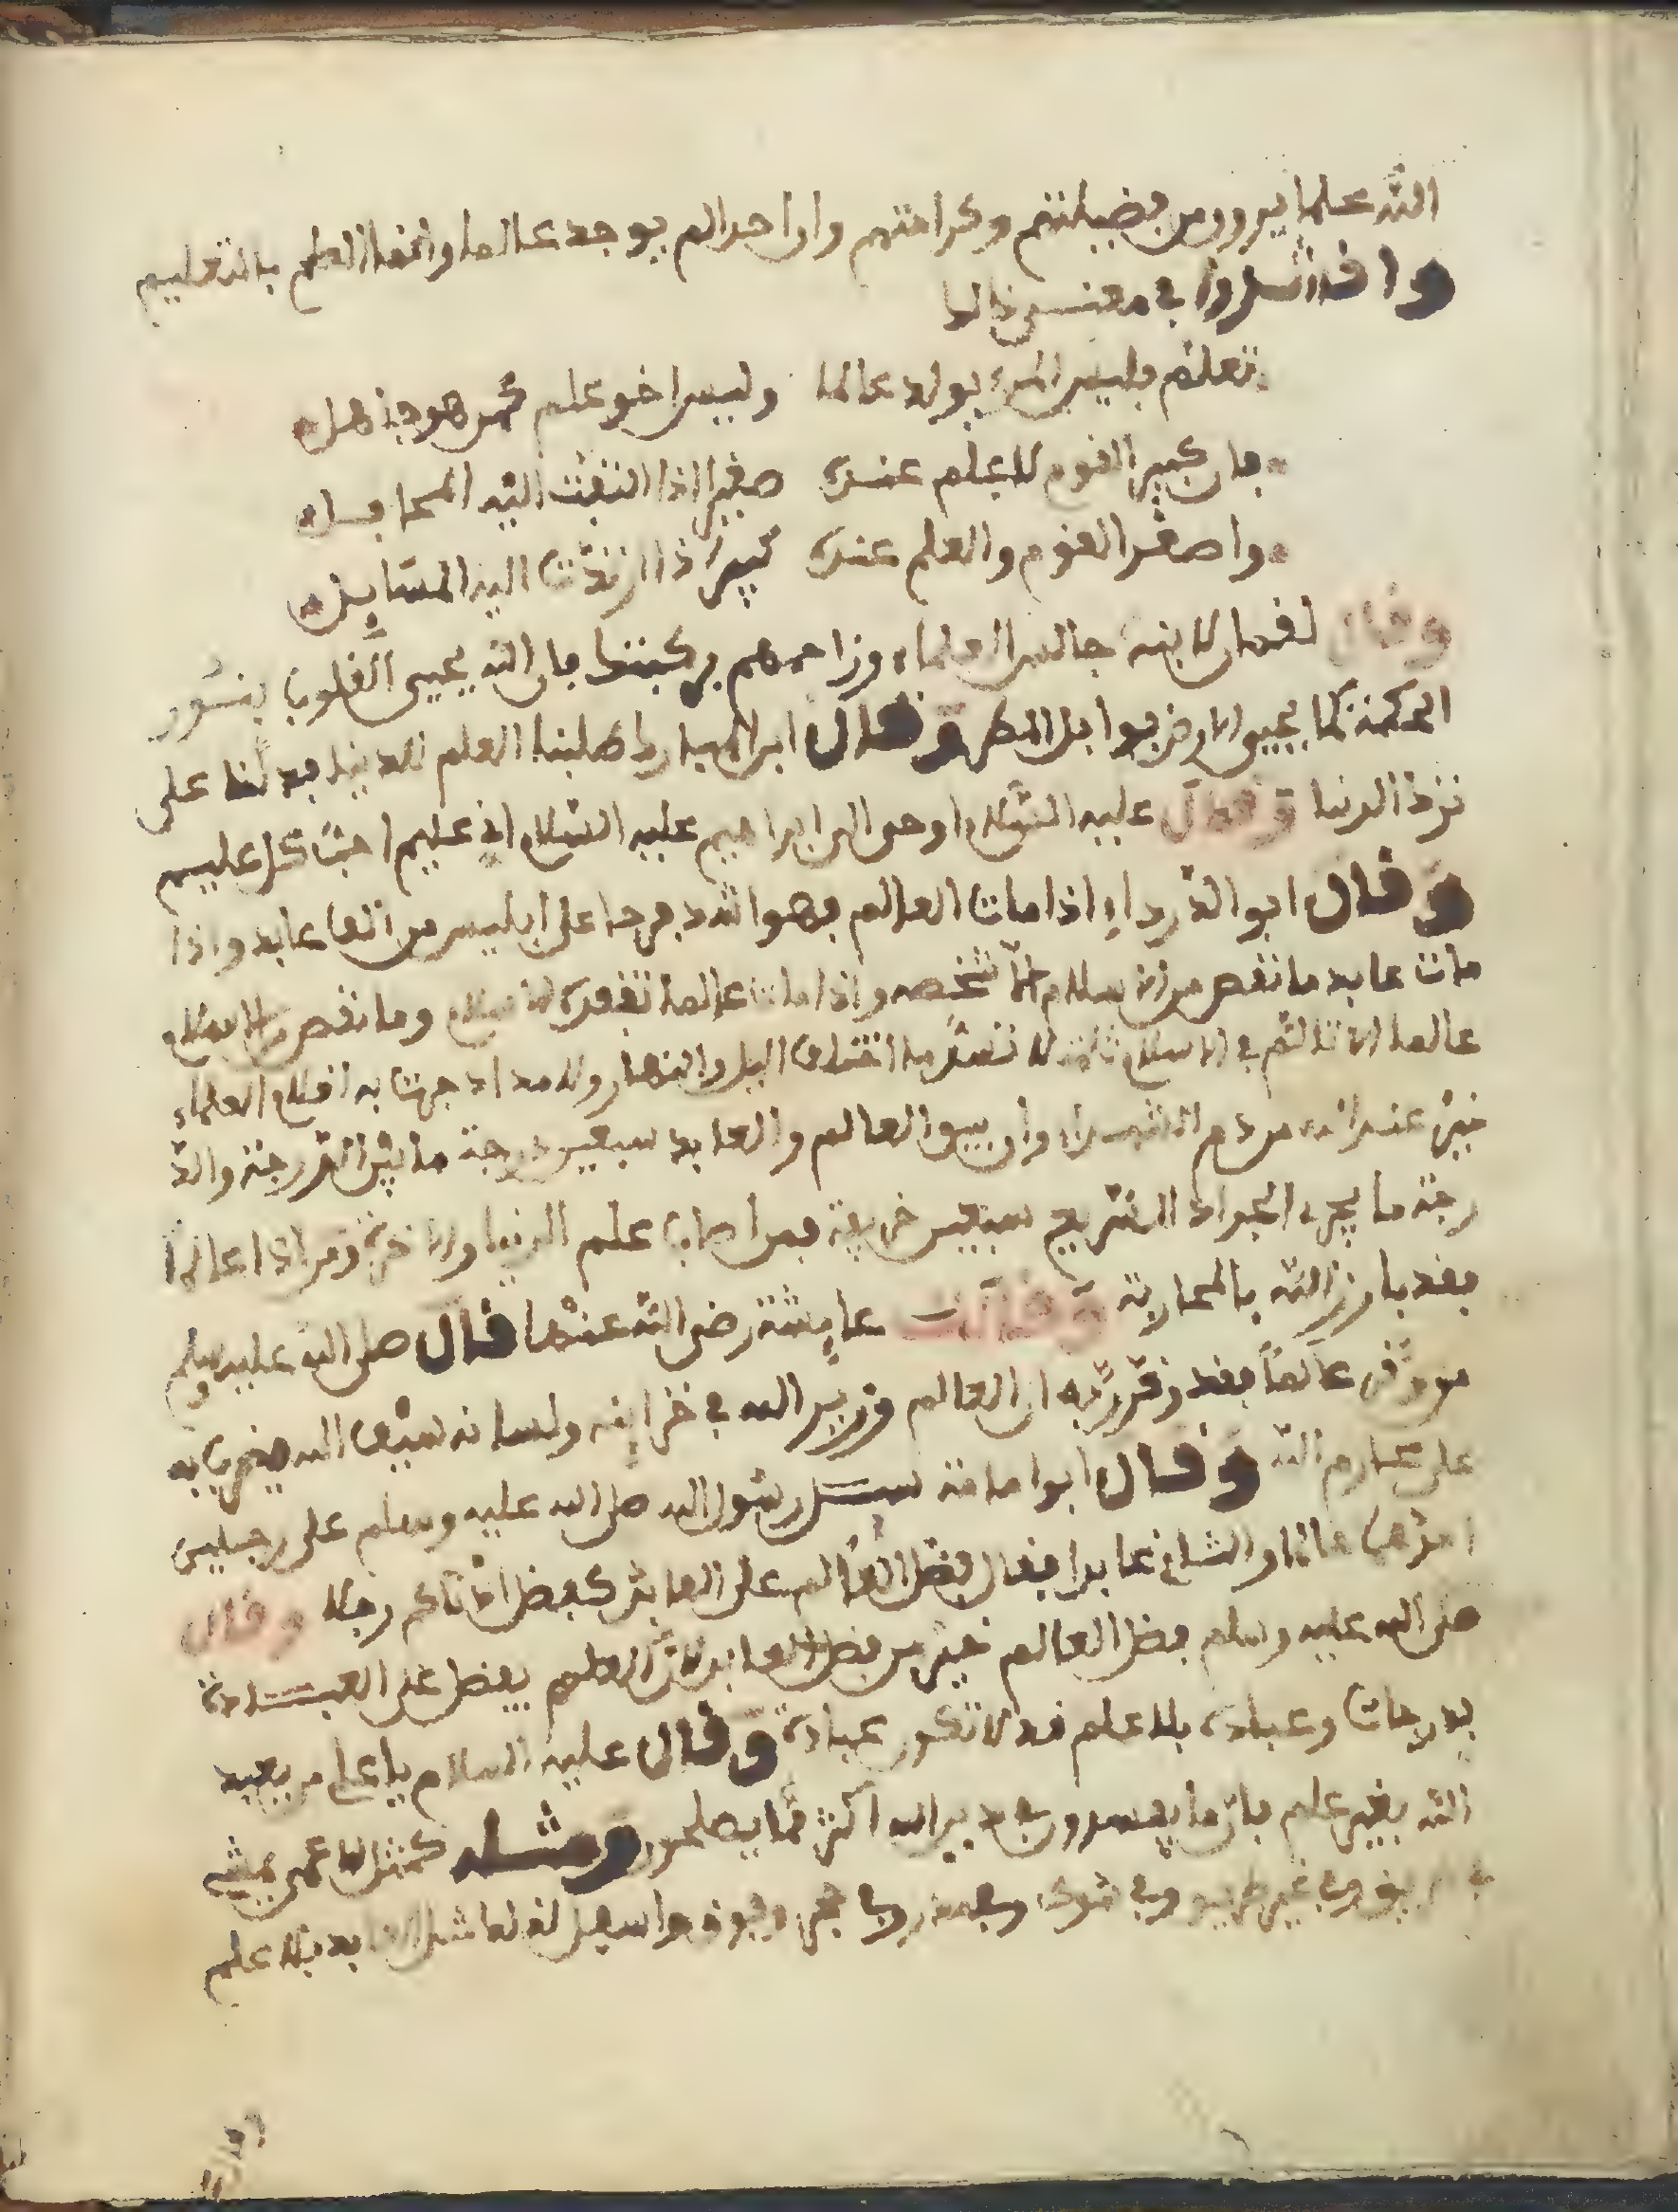 الله علما يرون من فضيلتهم وكرامتهم وان احدا لم يوجد عالما وانما العلم بالتعليم
وا قد انشدوا في معنى ذالك
تعلم فليس المرء يولد عالما وليس اخو علم كمن هو جاهل
فان كبير القوم لا علم عنده صغيرا اذا التفت اليه المحافل
واصغر القوم والعلم عنده كبير اذا ارتدت اليه المسايل
وقال لقمان لابنه جالس العلماء وزاحمهم بركبتك فان الله يحيي القلوب بنور
الحكمة كما يحيي الارض بوابل المطر وقال ابن المبارك طلبنا العلم للدنيا فدلنا على
ترك الدنيا وقال عليه السلام اوحى الى ابراهيم عليه السلام اني عليم احب كل عليم
وقال ابو الدرداء اذا مات العالم فهو اشد فرحا على ابليس من الف عابد واذا
مات عابد ما نقص من الاسلام الا شخصه واذا مات عالما تفقده الاسلام وما نقص من الاسلام
عالما الا تثلم في الاسلام ثلمة لا تسد ما اختلف اليل والنهار ولا مداد جرت به اقلام العلماء
خير عند الله من دم الشهداء وان بين العالم والعابد سبعين درجة ما بين الدرجة والد
رجة ما يجري الجواد السريع سبعين خريفة فمن اصاب علم الدنيا والاخرة ومن اذا عالما
فقد بارز الله بالمحاربة وقالت عايشة رضي الله عنها قال صلى الله عليه وسلم
من وقر عالما فقد وقر ربه ان العالم وزير الله في خزاينه ولسانه سيف الله يضرب به
على محارم الله وقال ابوا مامة سيل رسول الله صلى الله عليه وسلم على رجلين
احدهما عالما والثاني عابدا فقال فضل العالم على العابد كفضل ادناكم رجلا وقال
صلى الله عليه وسلم فضل العالم خير من فضل العابد لان العلم يفضل على العبادة
بدرجات وعبادة بلا علم قد لا تكون عبادة وقال عليه السلام يا علي من يعبد
الله بغير علم فان ما يفسدون في دين الله اكثر مما يصلحون ومثله كمثل الاعمى يمشي
في طريق وفي غير طريق وفي شوك وفي حجر بلا علم